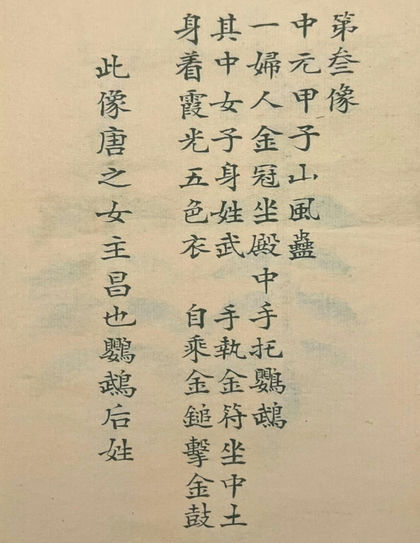 第叁像
中元甲子山風蠱
一婦人金冠坐殿中手托鸚鵡
其中女子身姓武 手執金符坐中土
身着霞光五色衣 自乘金鎚擊金鼓
此像唐之女主昌也鸚鵡后姓